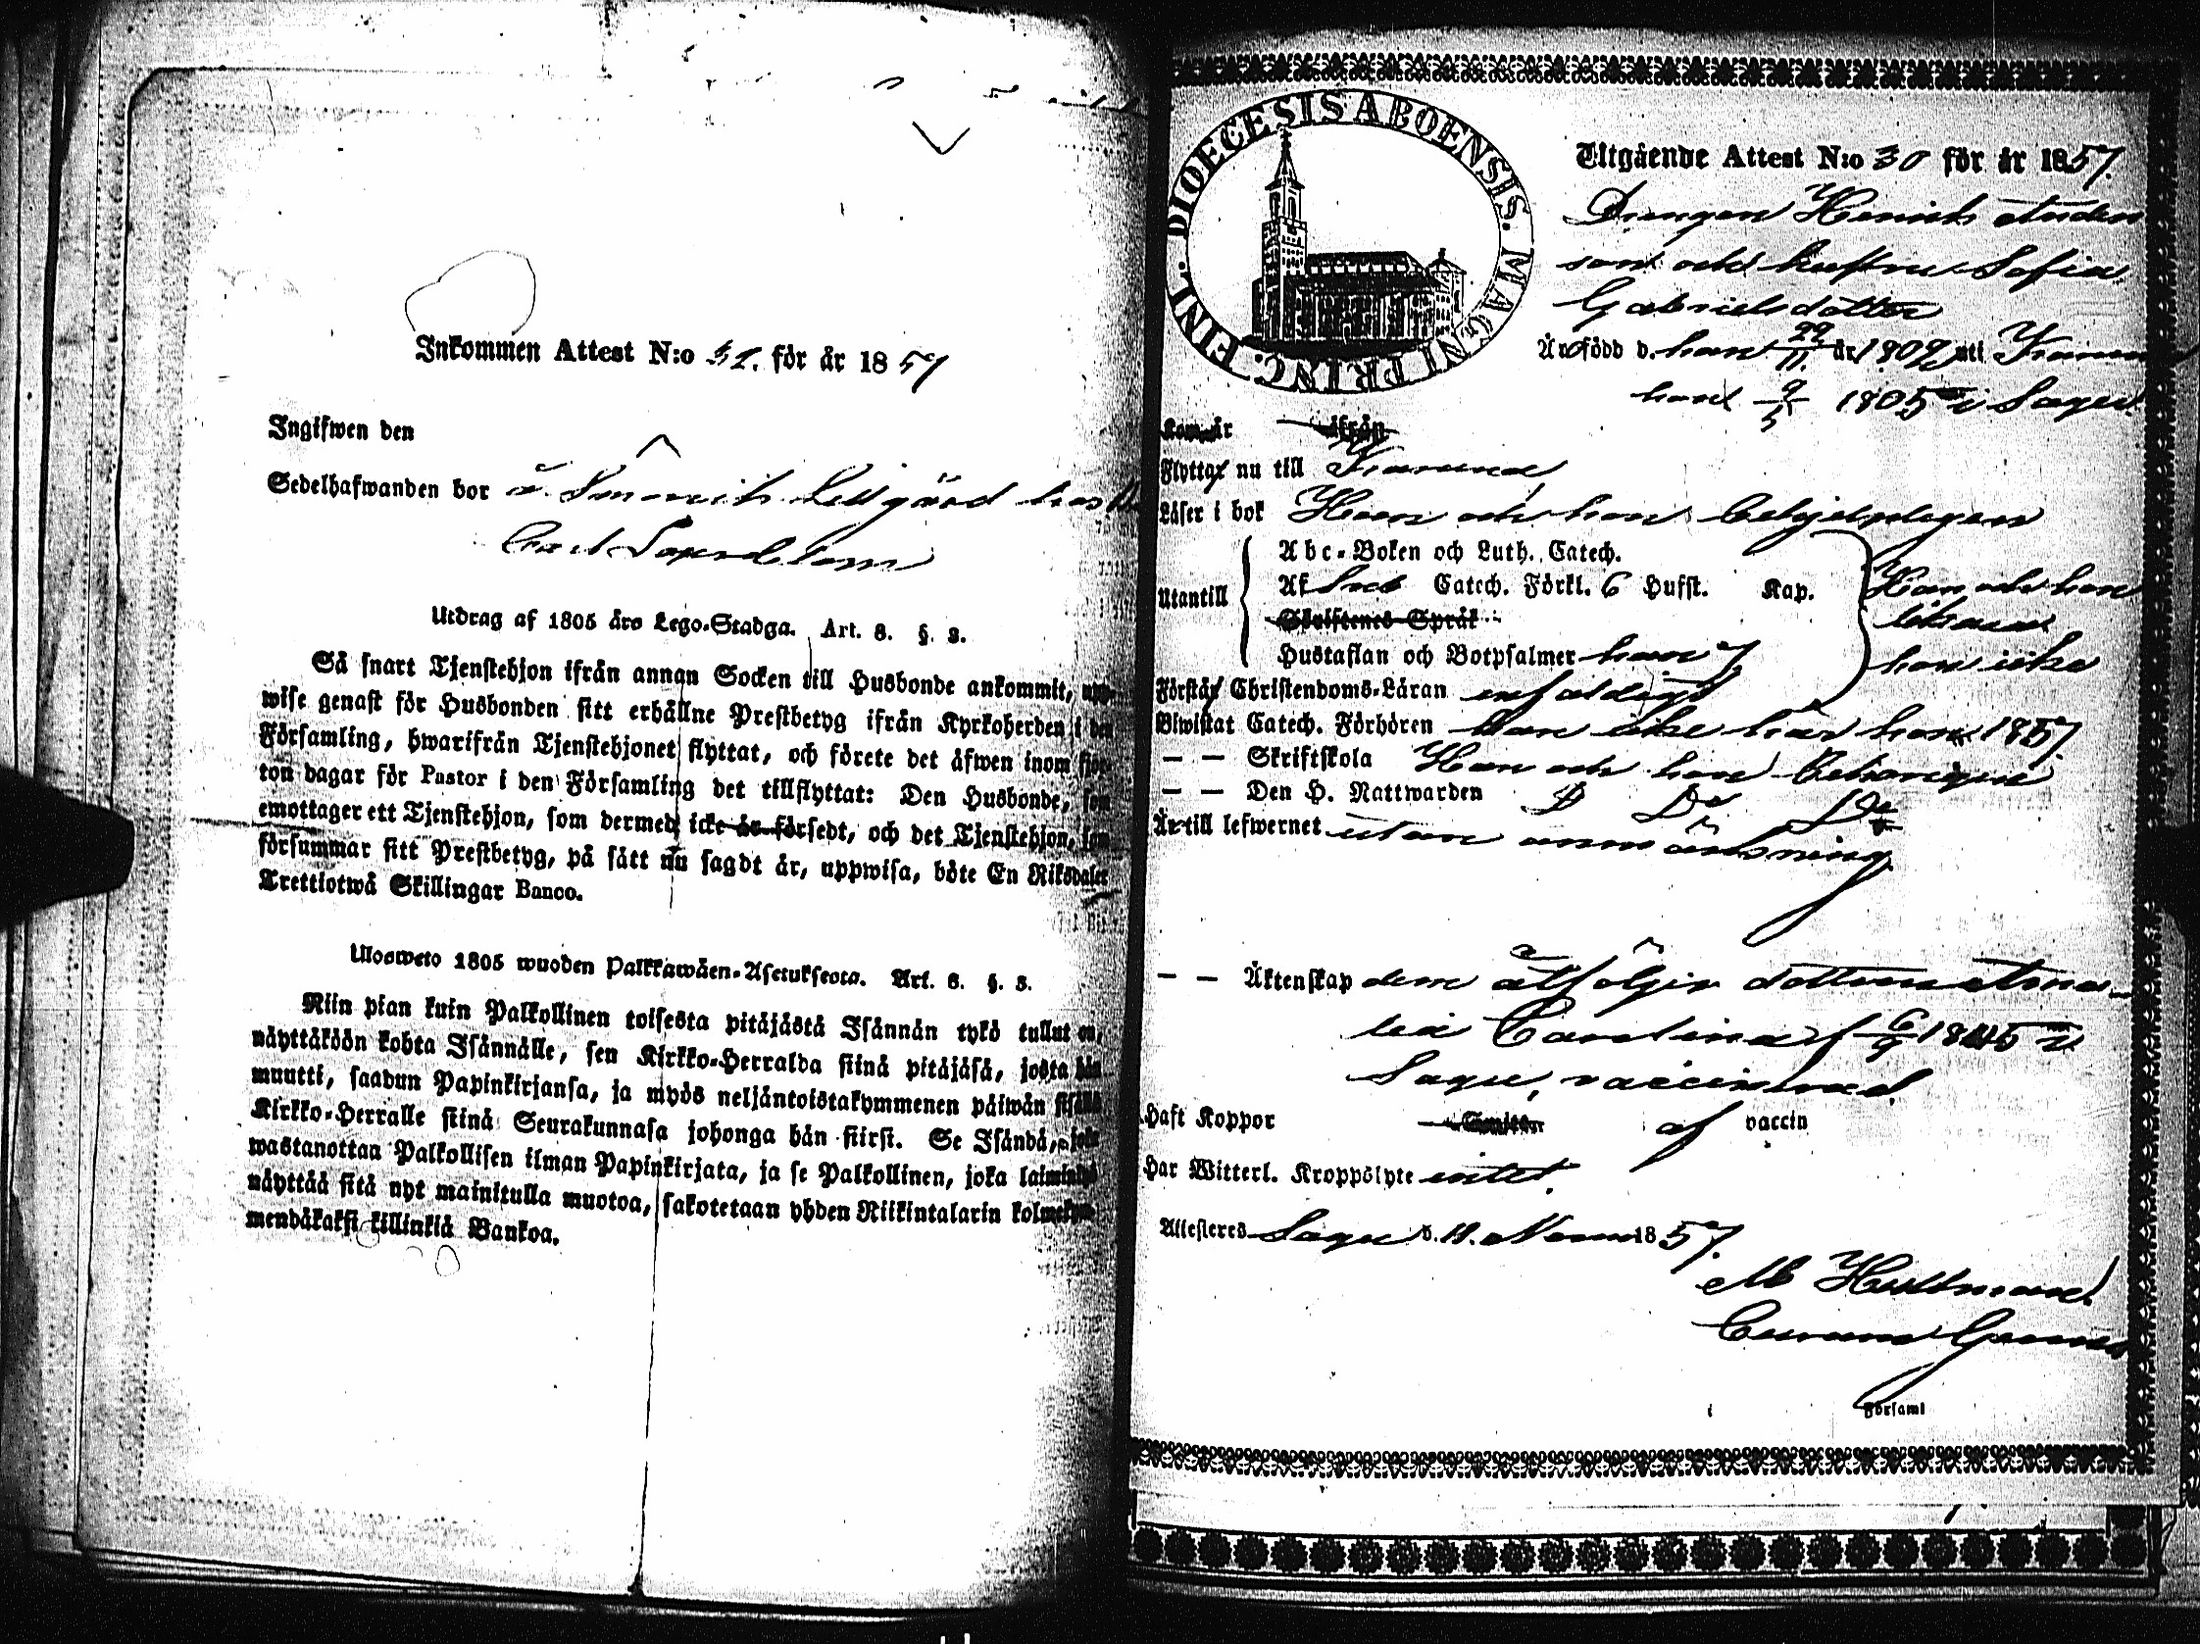 Inkommen Attest N:o 32. för år 1857
Ingifwen den
Sedelhafwanden bor å Lillgård hos
Carl
Utdrag af 1805 års Lego-Stadga. Art. 8. §. 3.
Så snart Tjenstehjon ifrån annan Socken till Husbonde ankommit, upp-
wise genast för Husbonden sitt erhållne Prestbetyg ifrån Kyrkoherden i den
Församling, hwarifrån Tjenstehjonet flyttat, och förete det äfwen inom fjor-
ton dagar för Pastor i den Församling det tillflyttat: Den Husbonde, som
emottager ett Tjenstehjon, som dermed icke är försedt, och det Tjenstehjon, som
försummar sitt Prestbetyg, på sätt nu sagdt är, uppwisa, böte En Riksdaler
Trettiotwå Skillingar Banco.
Ulosweto 1805 wuoden Palkkawäen-Asetuksesta. Art. 8. §. 3.
Niin pian kuin Palkollinen toisesta pitäjästä Isännän tykö tullut on,
näyttäköön kohta Isännälle, sen Kirkko-Herralda siinä pitäjäsä, josta hän
muutti, saadun Papinkirjansa, ja myös neljäntoistakymmenen päiwän sisällä
Kirkko-Herralle siinä Seurakunnasa johonga hän siirsi. Se Isändä, joka
wastanottaa Palkollisen ilman Papinkirjata, ja se Palkollinen, joka laiminlyö
näyttää sitä nyt mainitulla muotoa, sakotetaan yhden Riikintalarin kolmekym-
mendäkaksi killinkiä Bankoa.
DIOECESIS ABOENSIS. MAGNI PRINC. FINL.
Utgående Attest N:o 30 för år 1857.
Drengen Henrik Anders
son och hustru Sofia
Gabrielsdotter
Är född d. han 22/11 år 1802 uti
hon 9/5 1805 i Sagu
Kom år ifrån
Flyttar nu till
Läser i bok Han och hon behjelpligen
Utantill
Abc-Boken och Luth. Catech.
Af Sveb Catech. Förkl. 6 Hufst. Kap.
Skriftenes Språk
Hustaflan och Botpsalmer han 7
Han och hon
likaså
hon icke
Förstår Christendoms-Läran enfaldigt
Biwistat Catech. Förhören han icke här hon 1857.
— — Skriftskola Han och hon behörigen
— — Den H. Nattwarden D Do Do
Är till lefwernet utan anmärkning
— — Äktenskap dem åtföljer dottren Ama-
lia Carolina f 6/9 1845 i
Sagu, vaccinerad.
Haft Koppor af vaccin
Har Witterl. Kroppslyte intet.
Attesteres Sagu d. 11. Novem 1857.
Hultman
Församl